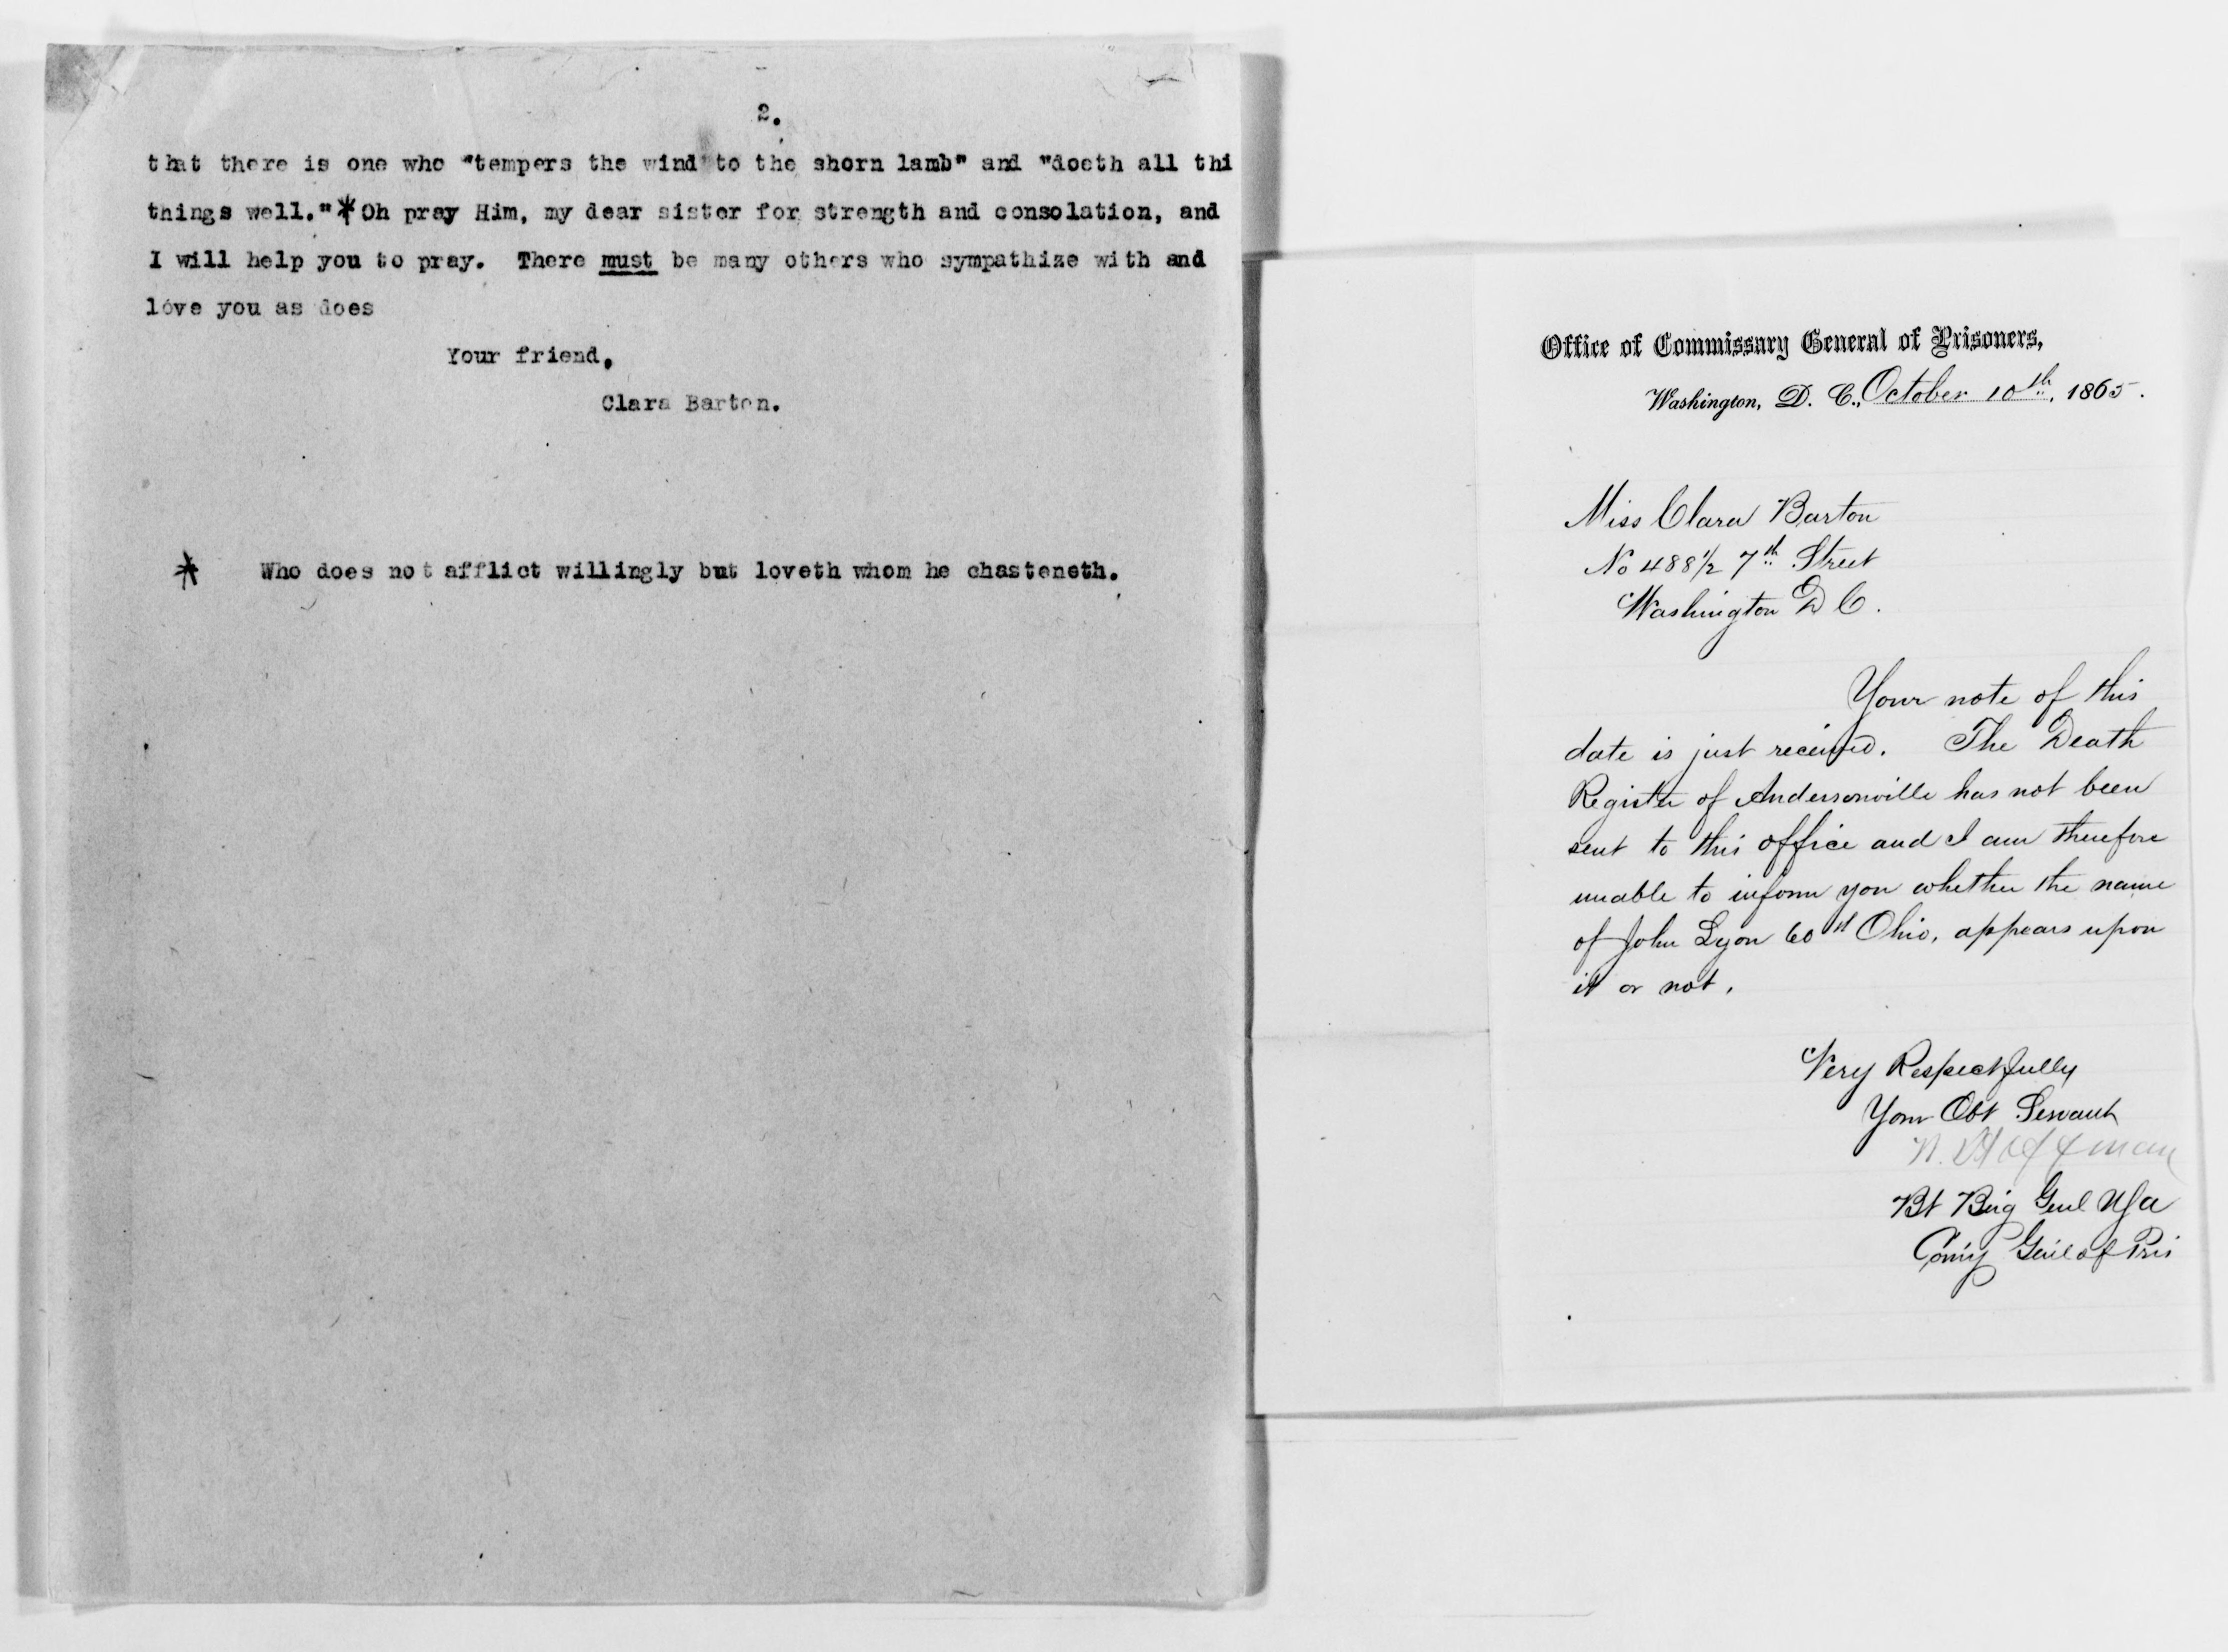 2.
that there is one who "tempers the wind to the shorn lamb" and "doeth all thi
things well."* Oh pray Him, my dear sister for strength and consolation, and
I will help you to pray. There must be many others who sympathize with and
love you as does
Your friend,
Clara Barton.
* Who does not afflict willingly but loveth whom he chasteneth.
Office of Commissary General of Prisoners,
Washington, D. C., October 10th, 1865.
Miss Clara Barton
No 488 1/2 7th Street
Washington D C.
Your note of this
date is just received. The Death
Register of Andersonville has not been
sent to this office and I am therefore
unable to inform you whether the name
of John Lyon 60th Ohio, appears upon
it or not.
Very Respectfully
Your Obt Servant
W. Hoffman
Bt Brig Genl USA
Comy Genl of Pris